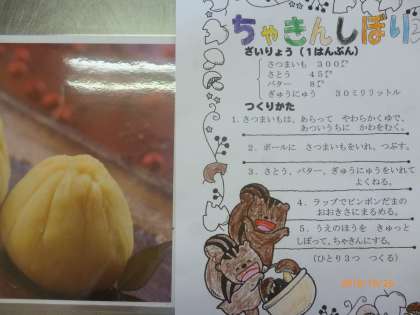 ちゃきんしぼり
ざいりょう（1はんぶん）
さつまいも 300㌘
さとう 45㌘
バター 8㌘
ぎゅうにゅう 30ミリリットル
つくりかた
1．さつまいもは、あらって やわらかくゆで、
あついうちに かわをむく。
2．ボールに さつまいもをいれ、つぶす。
3．さとう、バター、ぎゅうにゅうをいれて
よくねる。
4．ラップでピンポンだまの
おおきさにまるめる。
5．うえのほうを きゅっと
しぼって、ちゃきんにする。
（ひとり3つ つくる）